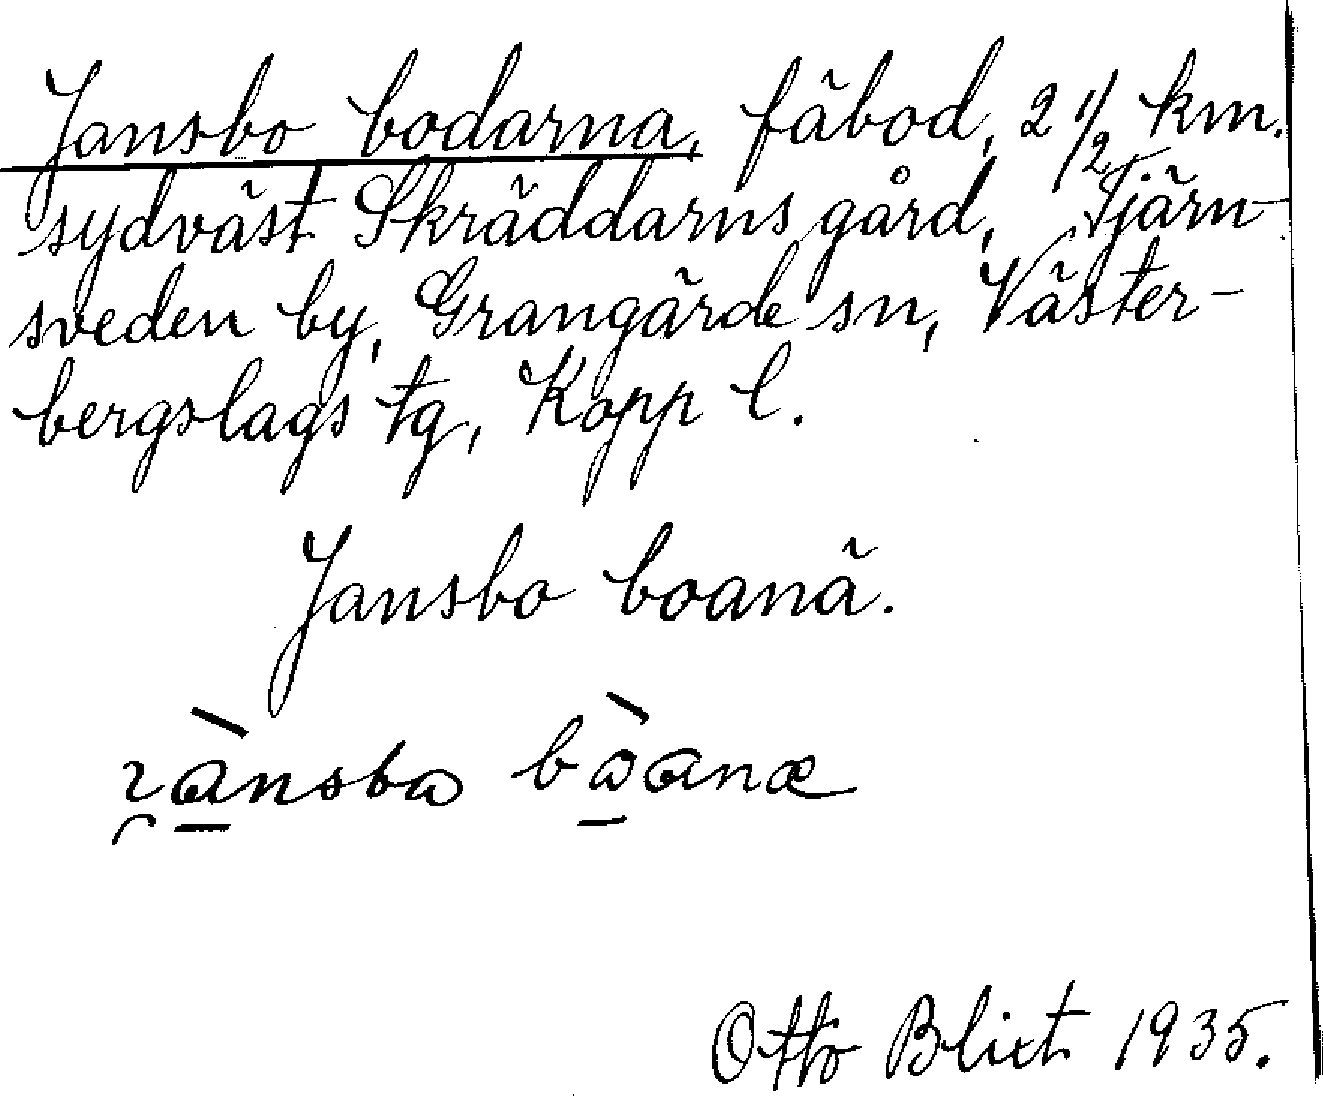 Jansbo bodarna, fäbod, 2 1/2 km.
sydväst Skräddarns gård, Tjärn-
sveden by, Grangärde sn, Väster-
bergslags tg, Kopp l.
Jansbo boanä.
Otto Blixt 1935.